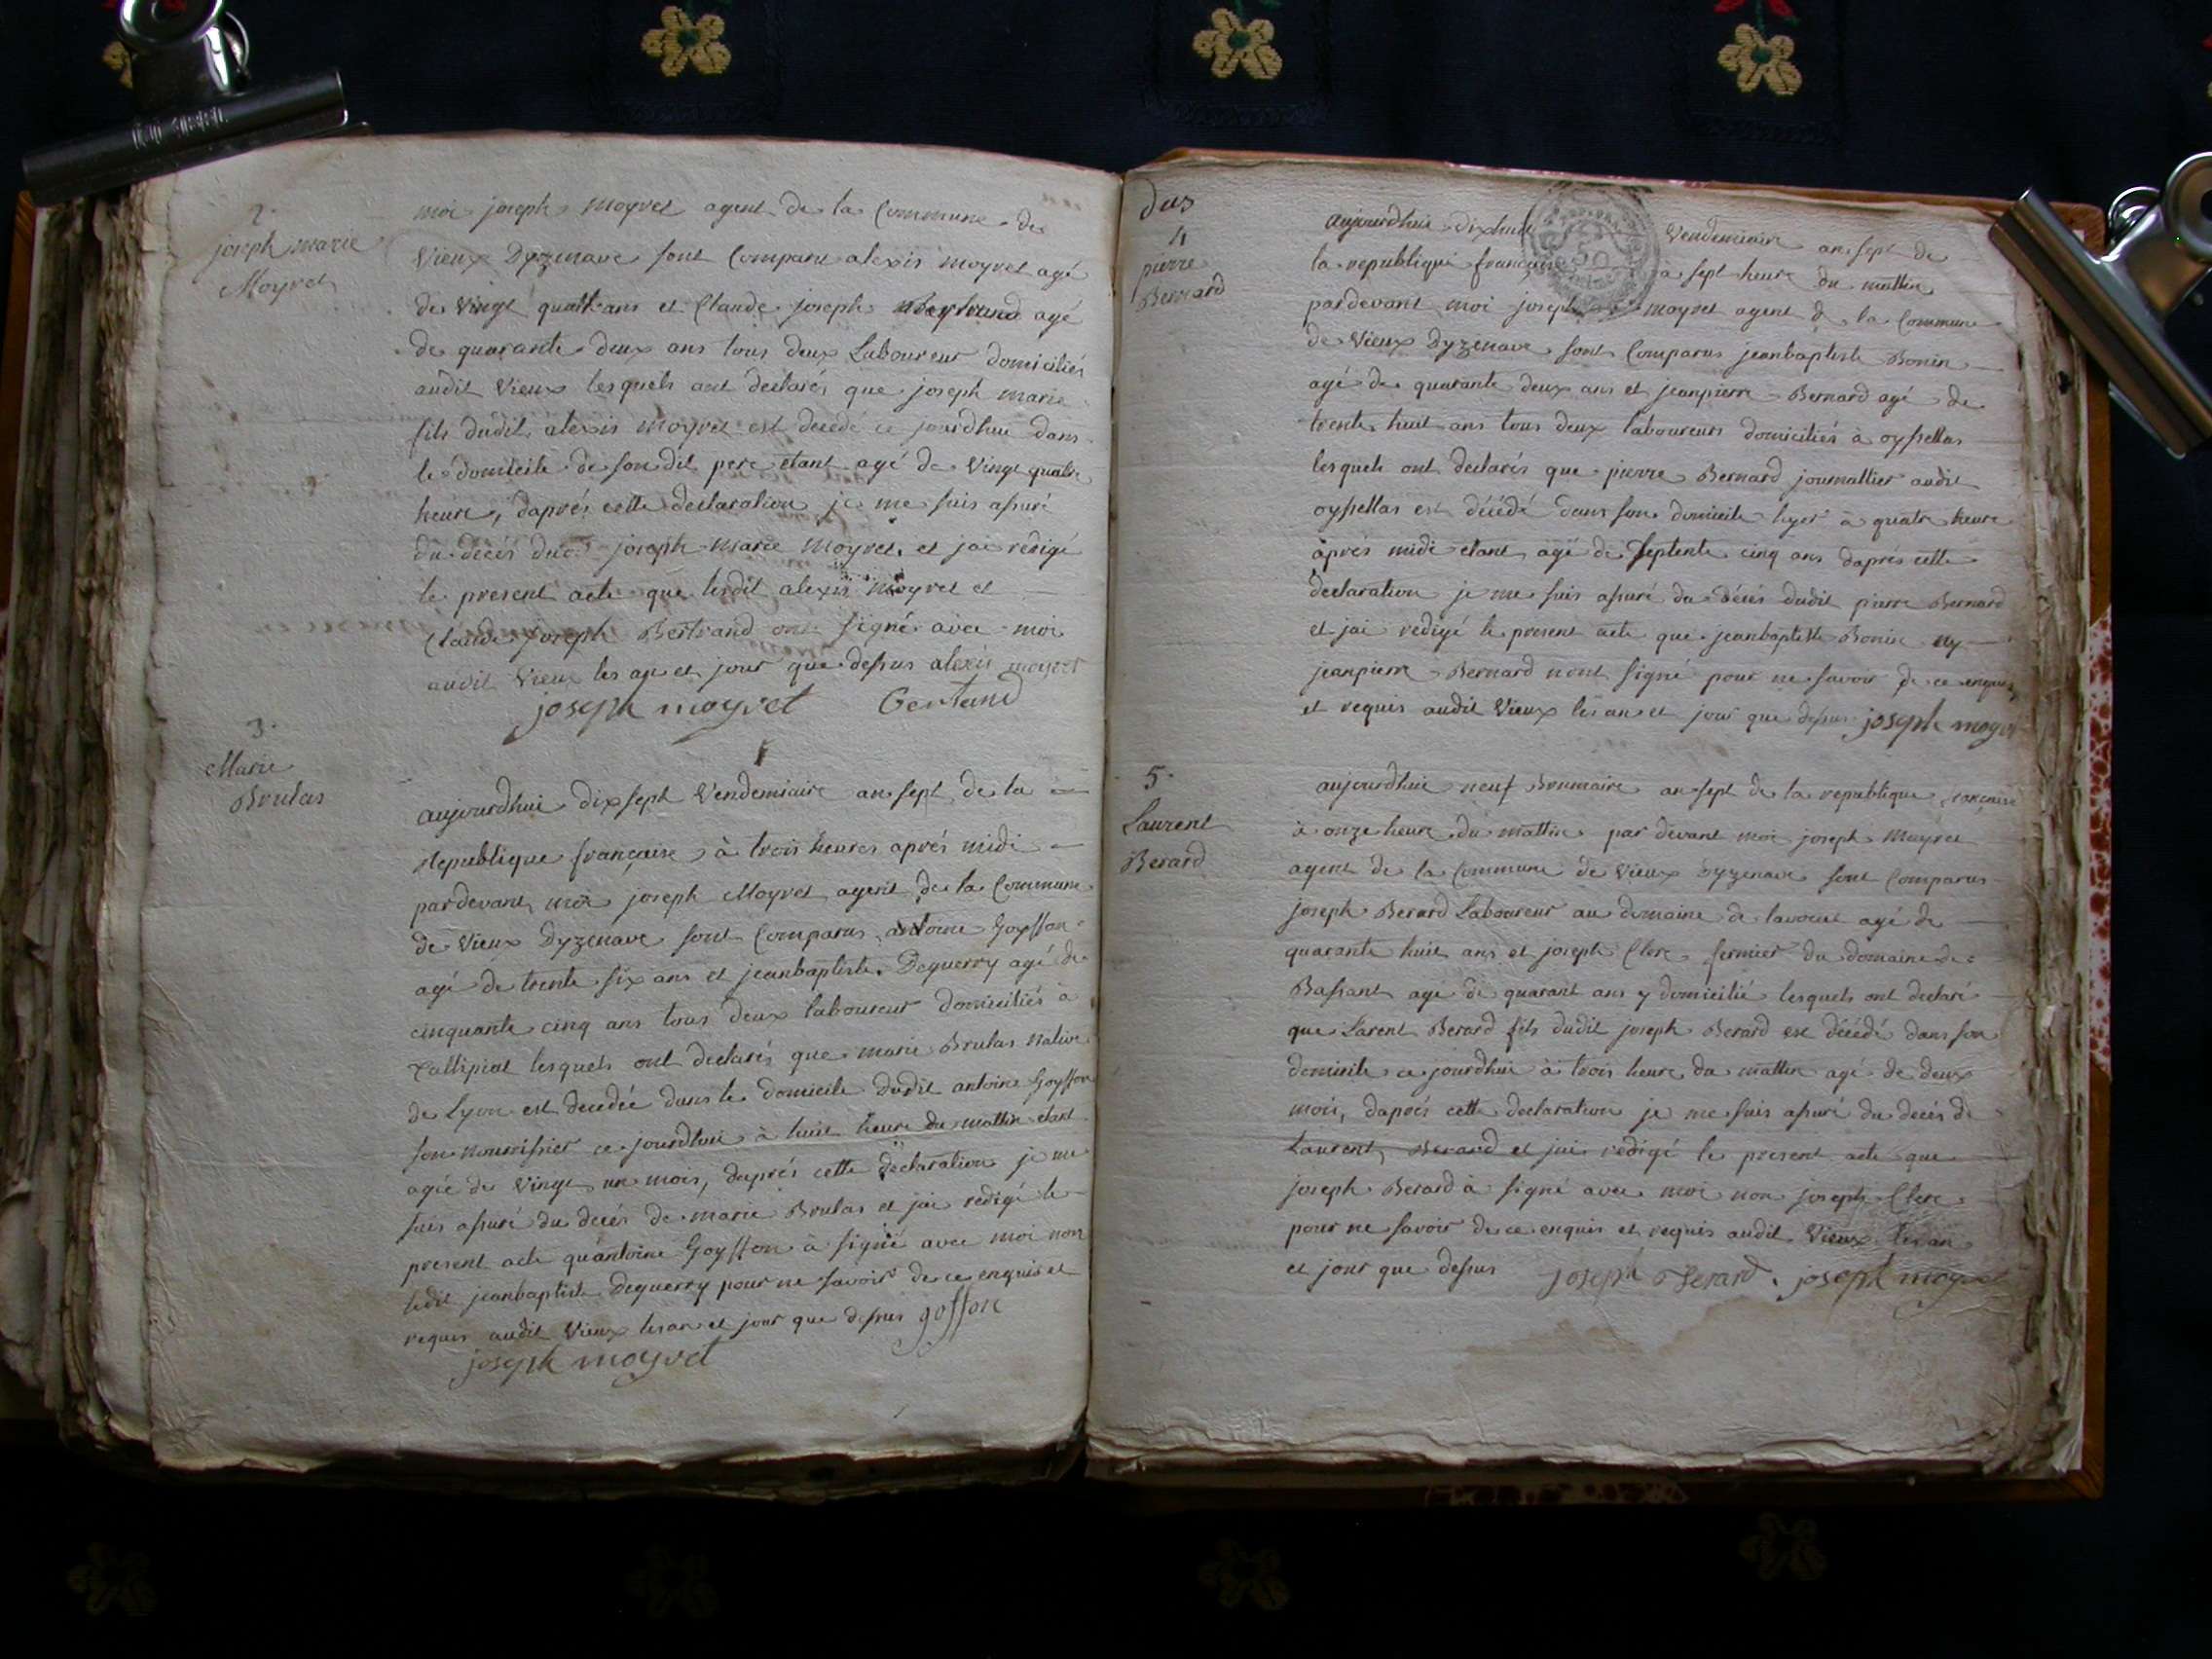 2.
joseph marie
Moyret
moi joseph moyret agent de la Commune de
Vieux Dyzenave sont Comparu alexis moyret agé
de Vingt quatt ans et Claude joseph agé
de quarante deux ans tous deux Laboureur domiciliés
audit Vieux lesquels ont declarés que joseph marie
fils dudit alexis moyret est decedé ce jourdhui dans
le domicile de son dit pere etant agé de Vingt quatre
heure, daprés cette declaration je me suis assuré
du decés joseph marie moyret et jai redigé
le present acte que lesdit alexis moyret et
Claude joseph Bertrand ont signé avec moi
audit Vieux les an et jour que dessus alexis moyret
joseph moyret Bertrand
3.
Marie
Brulas
aujourdhui dix sept Vendemiaire an sept de la
republique française à trois heures aprés midi
pardevant moi joseph Moyret agent de la Commune
de Vieux Dyzenave sont Comparus antoine Goysson
agé de trente six ans et jeanbaptiste Deguerry agé de
cinquante cinq ans tous deux laboureur domiciliés à
lesquels ont declarés que marie Brulas native
de Lyon est decedée dans le domicile dudit antoine Goysson
son nourrissier ce jourdhui à huit heure du mattin etant
agée de Vingt un mois, daprés cette declaration je me
suis assuré du decés de marie Brulas et jai redigé le
present acte quantoine Goysson à signé avec moi non
ledit jeanbaptiste Deguerry pour ne savoir de ce enquis et
requis audit Vieux les an et jour que dessus gosson
joseph moyret
4
pierre
Bernard
aujourdhui dixhuit Vendemiaire an sept de
la republique française à sept heure du mattin
pardevant moi joseph moyret agent de la Commune
de Vieux Dyzenave sont Comparus jeanbaptiste Bonin
agé de quarante deux ans et jeanpierre Bernard agé de
trente huit ans tous deux laboureurs domiciliés à oyssellas
lesquels ont declarés que pierre Bernard journallier audit
oyssellas est décédé dans son domicile hyer à quatre heure
aprés midi etant agé de septente cinq ans daprés cette
declaration je me suis assuré du décés dudit pierre Bernard
et jai redigé le present acte que jeanbaptiste Bonin
jeanpierre Bernard nont signé pour ne savoir de ce enquis
et requis audit Vieux les an et jour que dessus joseph moyret
5.
Laurent
Berard
aujourdhui neuf Brumaire an sept de la republique française
à onze heure du mattin par devant moi joseph Moyret
agent de la Commune de Vieux Dyzenave sont Comparus
joseph Berard Laboureur au domaine de agé de
quarante huit ans et joseph Clerc fermier du domaine de
Bassant agé de quarant ans y domicilié lesquels ont declaré
que Larent Berard fils dudit joseph Berard est décédé dans son
domicile ce jourdhui à trois heure du mattin agé de deux
mois, daprés cette declaration je me suis assuré du decés de
Laurent Berard et jai redigé le present acte que
joseph Berard à signé avec moi non joseph Clerc
pour ne savoir de ce enquis et requis audit Vieux les an
et jour que dessus joseph Berard. joseph moyret